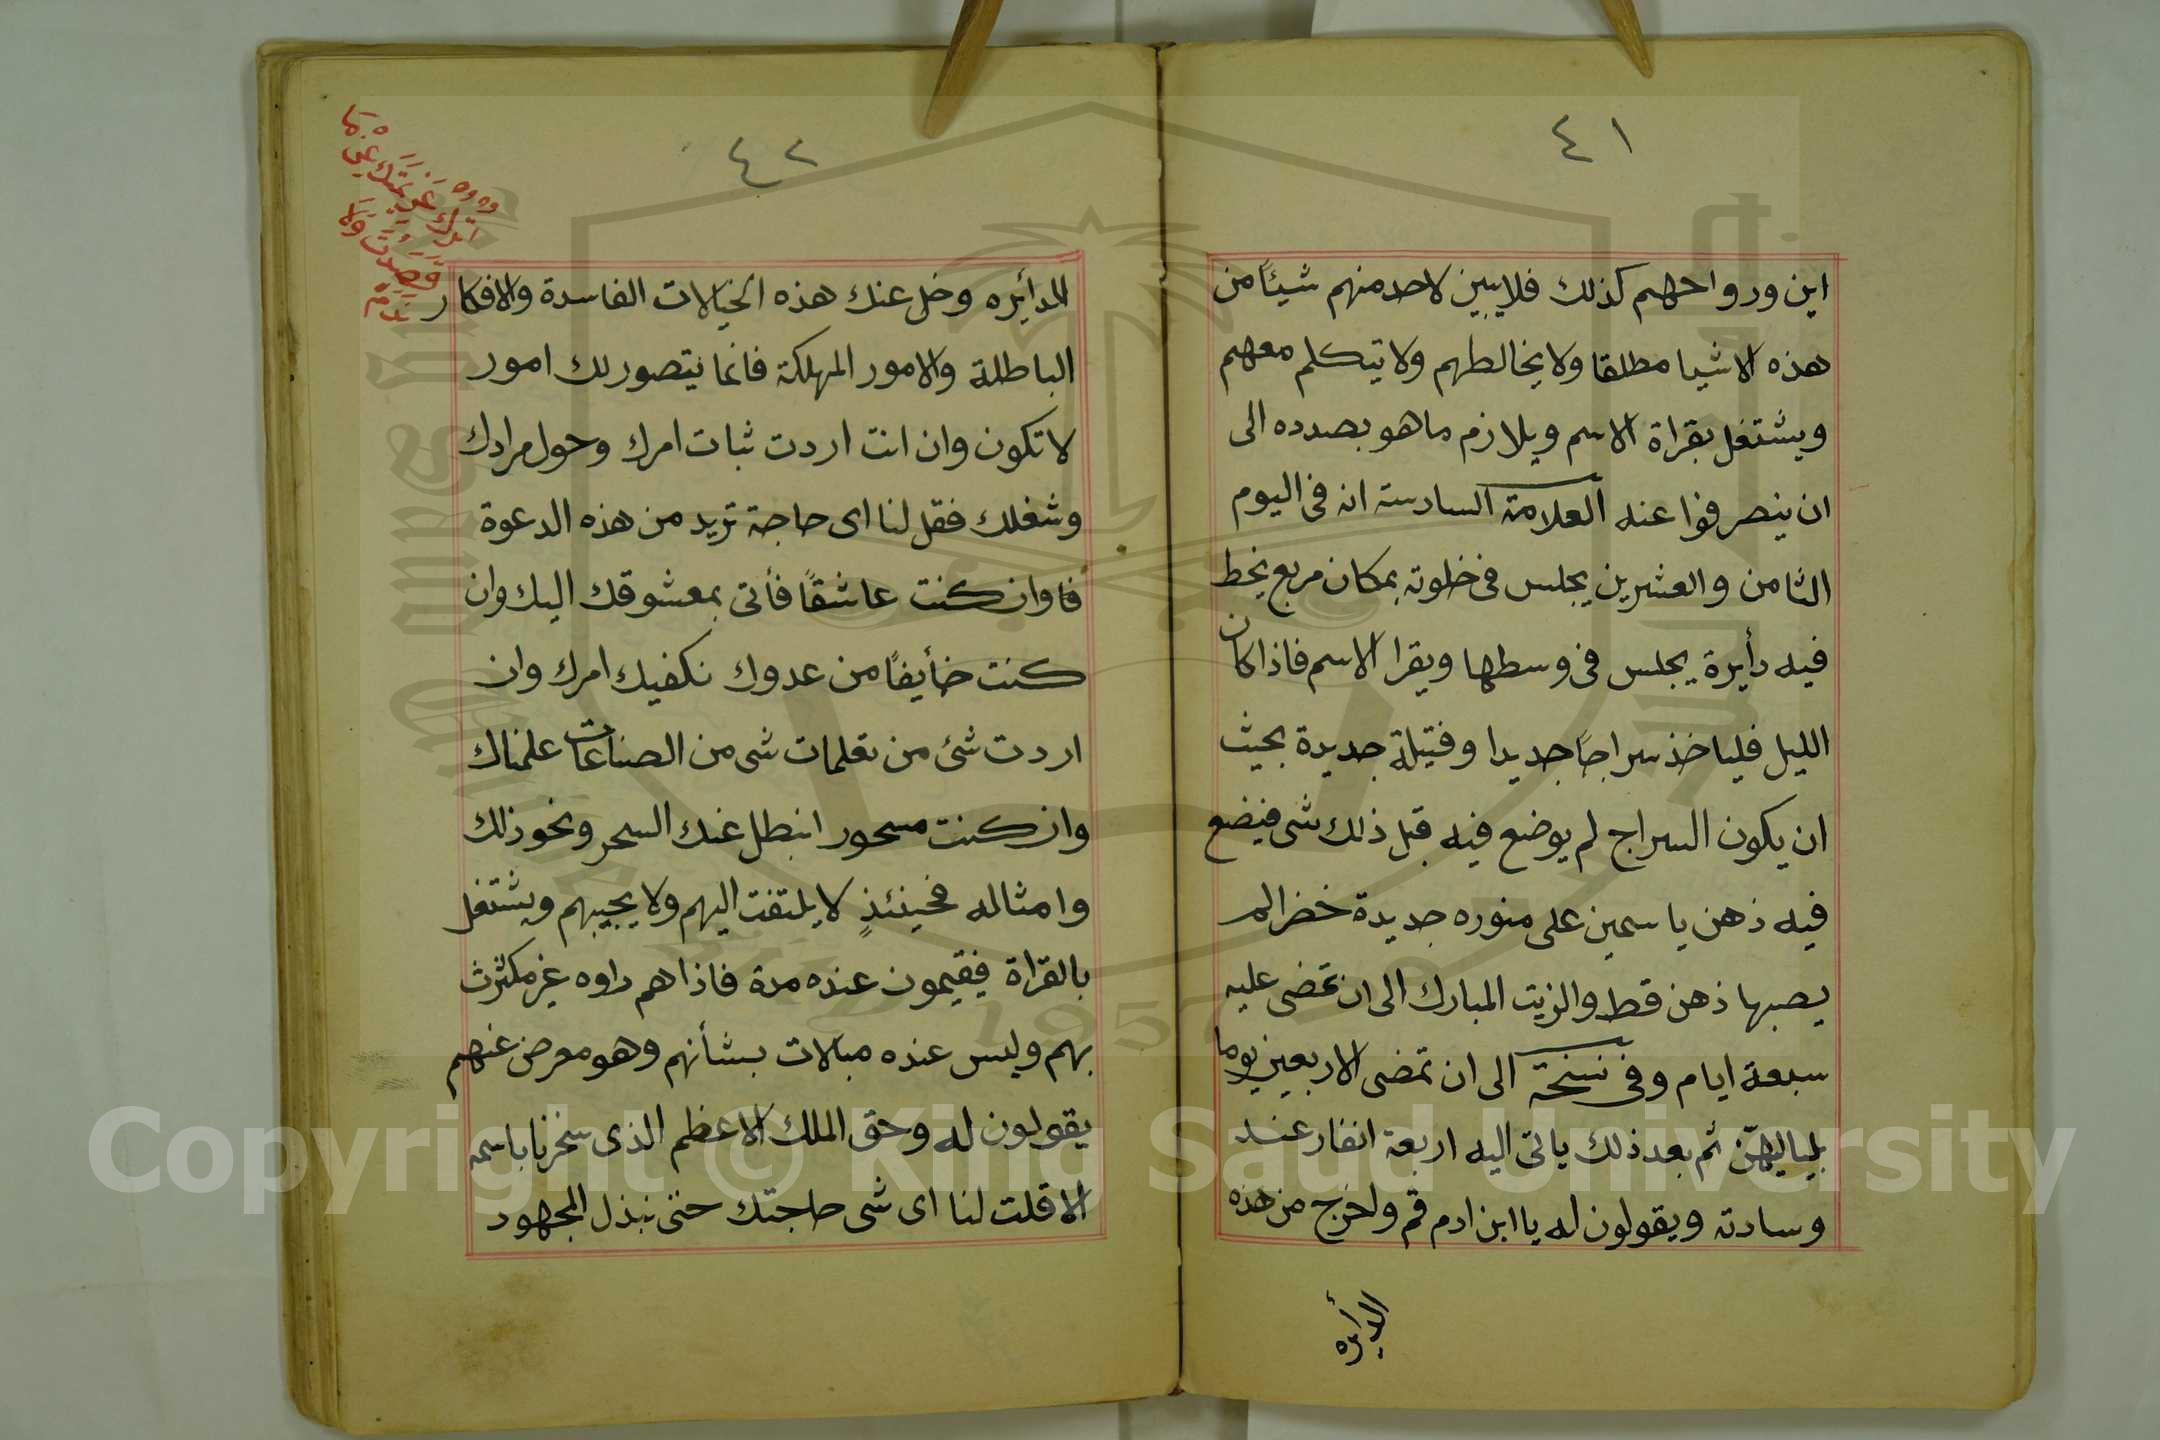 ٤١
اين ورواحهم كذلك فلا يبين لاحد منهم شيئًا من
هذه الاشيا مطلقا ولا يخالطهم ولا يتكلم معهم
ويشتغل بقراة الاسم ويلازم ما هو بصدده الى
ان ينصرفوا عنه العلامة السادسة انه فى اليوم
الثامن والعشرين يجلس فى خلوته بمكان مربع يخط
فيه دأيرة يجلس فى وسطها ويقرا الاسم فاذا كان
الليل فلياخذ سراجًا جديدا وفتيلة جديدة بحيث
ان يكون السراج لم يوضع فيه قبل ذلك شى فيضع
فيه ذهن ياسمين على منوره جديدة خضرا لم
يصبها ذهن قط والزيت المبارك الى ان تمضى عليه
سبعة ايام وفى نسخة الى ان تمضى الاربعين يوما
بلياليهن ثم بعد ذلك ياتى اليه اربعة انفار عند
وسادته ويقولون له يا ابن ادم قم واخرج من هذه
الدأيره
٤٢
الدأيره وخل عنك هذه الخيالات الفاسدة والافكار
الباطلة والامور المهلكة فانما يتصور لك امور
لا تكون وان انت اردت ثبات امرك وحول مرادك
وشغلك فقل لنا اى حاجة تريد من هذه الدعوة
فا وان كنت عاشقًا فأتى بمعشوقك اليك وان
كنت خأيفًا من عدوك نكفيك امرك وان
اردت شئ من تعلمات شى من الصناعات علمناك
وان كنت مسحور ابنطل عنك السحر ونحو ذلك
وامثاله فحينئذٍ لا يلتفت اليهم ولا يجيبهم ويشتغل
بالقراة فيقيمون عنده مدة فاذا هم راوه غير مكترث
بهم وليس عنده مبالات بشأنهم وهو معرض عنهم
يقولون له وحق الملك الاعظم الذى سخرنا باسمه
الا قلت لنا اى شى حاجتك حتى نبذل المجهود
Copyright © King Saud University
1957